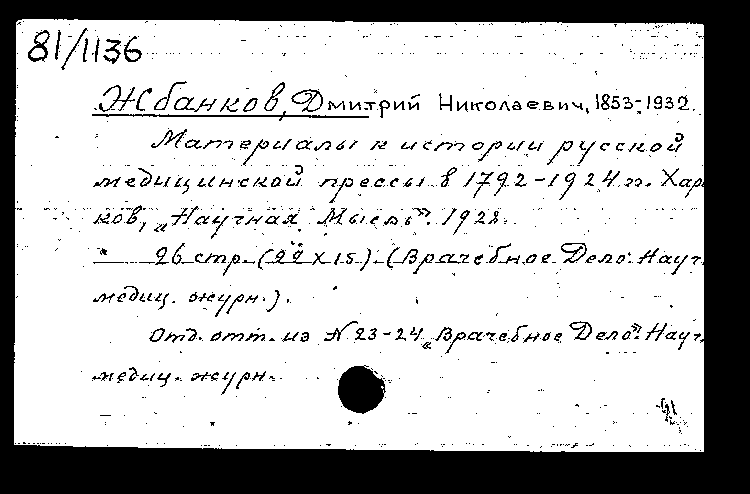 81/1136
Жбанков, Дмитрий Николаевич, 1853-1932.
Материалы к истории русской
медицинской прессы в 1792-1924 гг. Харь
ков, „Научная Мысль". 1928.
26 стр. (22 х 15). (Врачебное Дело. Науч.
медиц. журн.).
Отд. отт. из N 23-24 „Врачебное Дело". Науч.
медиц. журн.